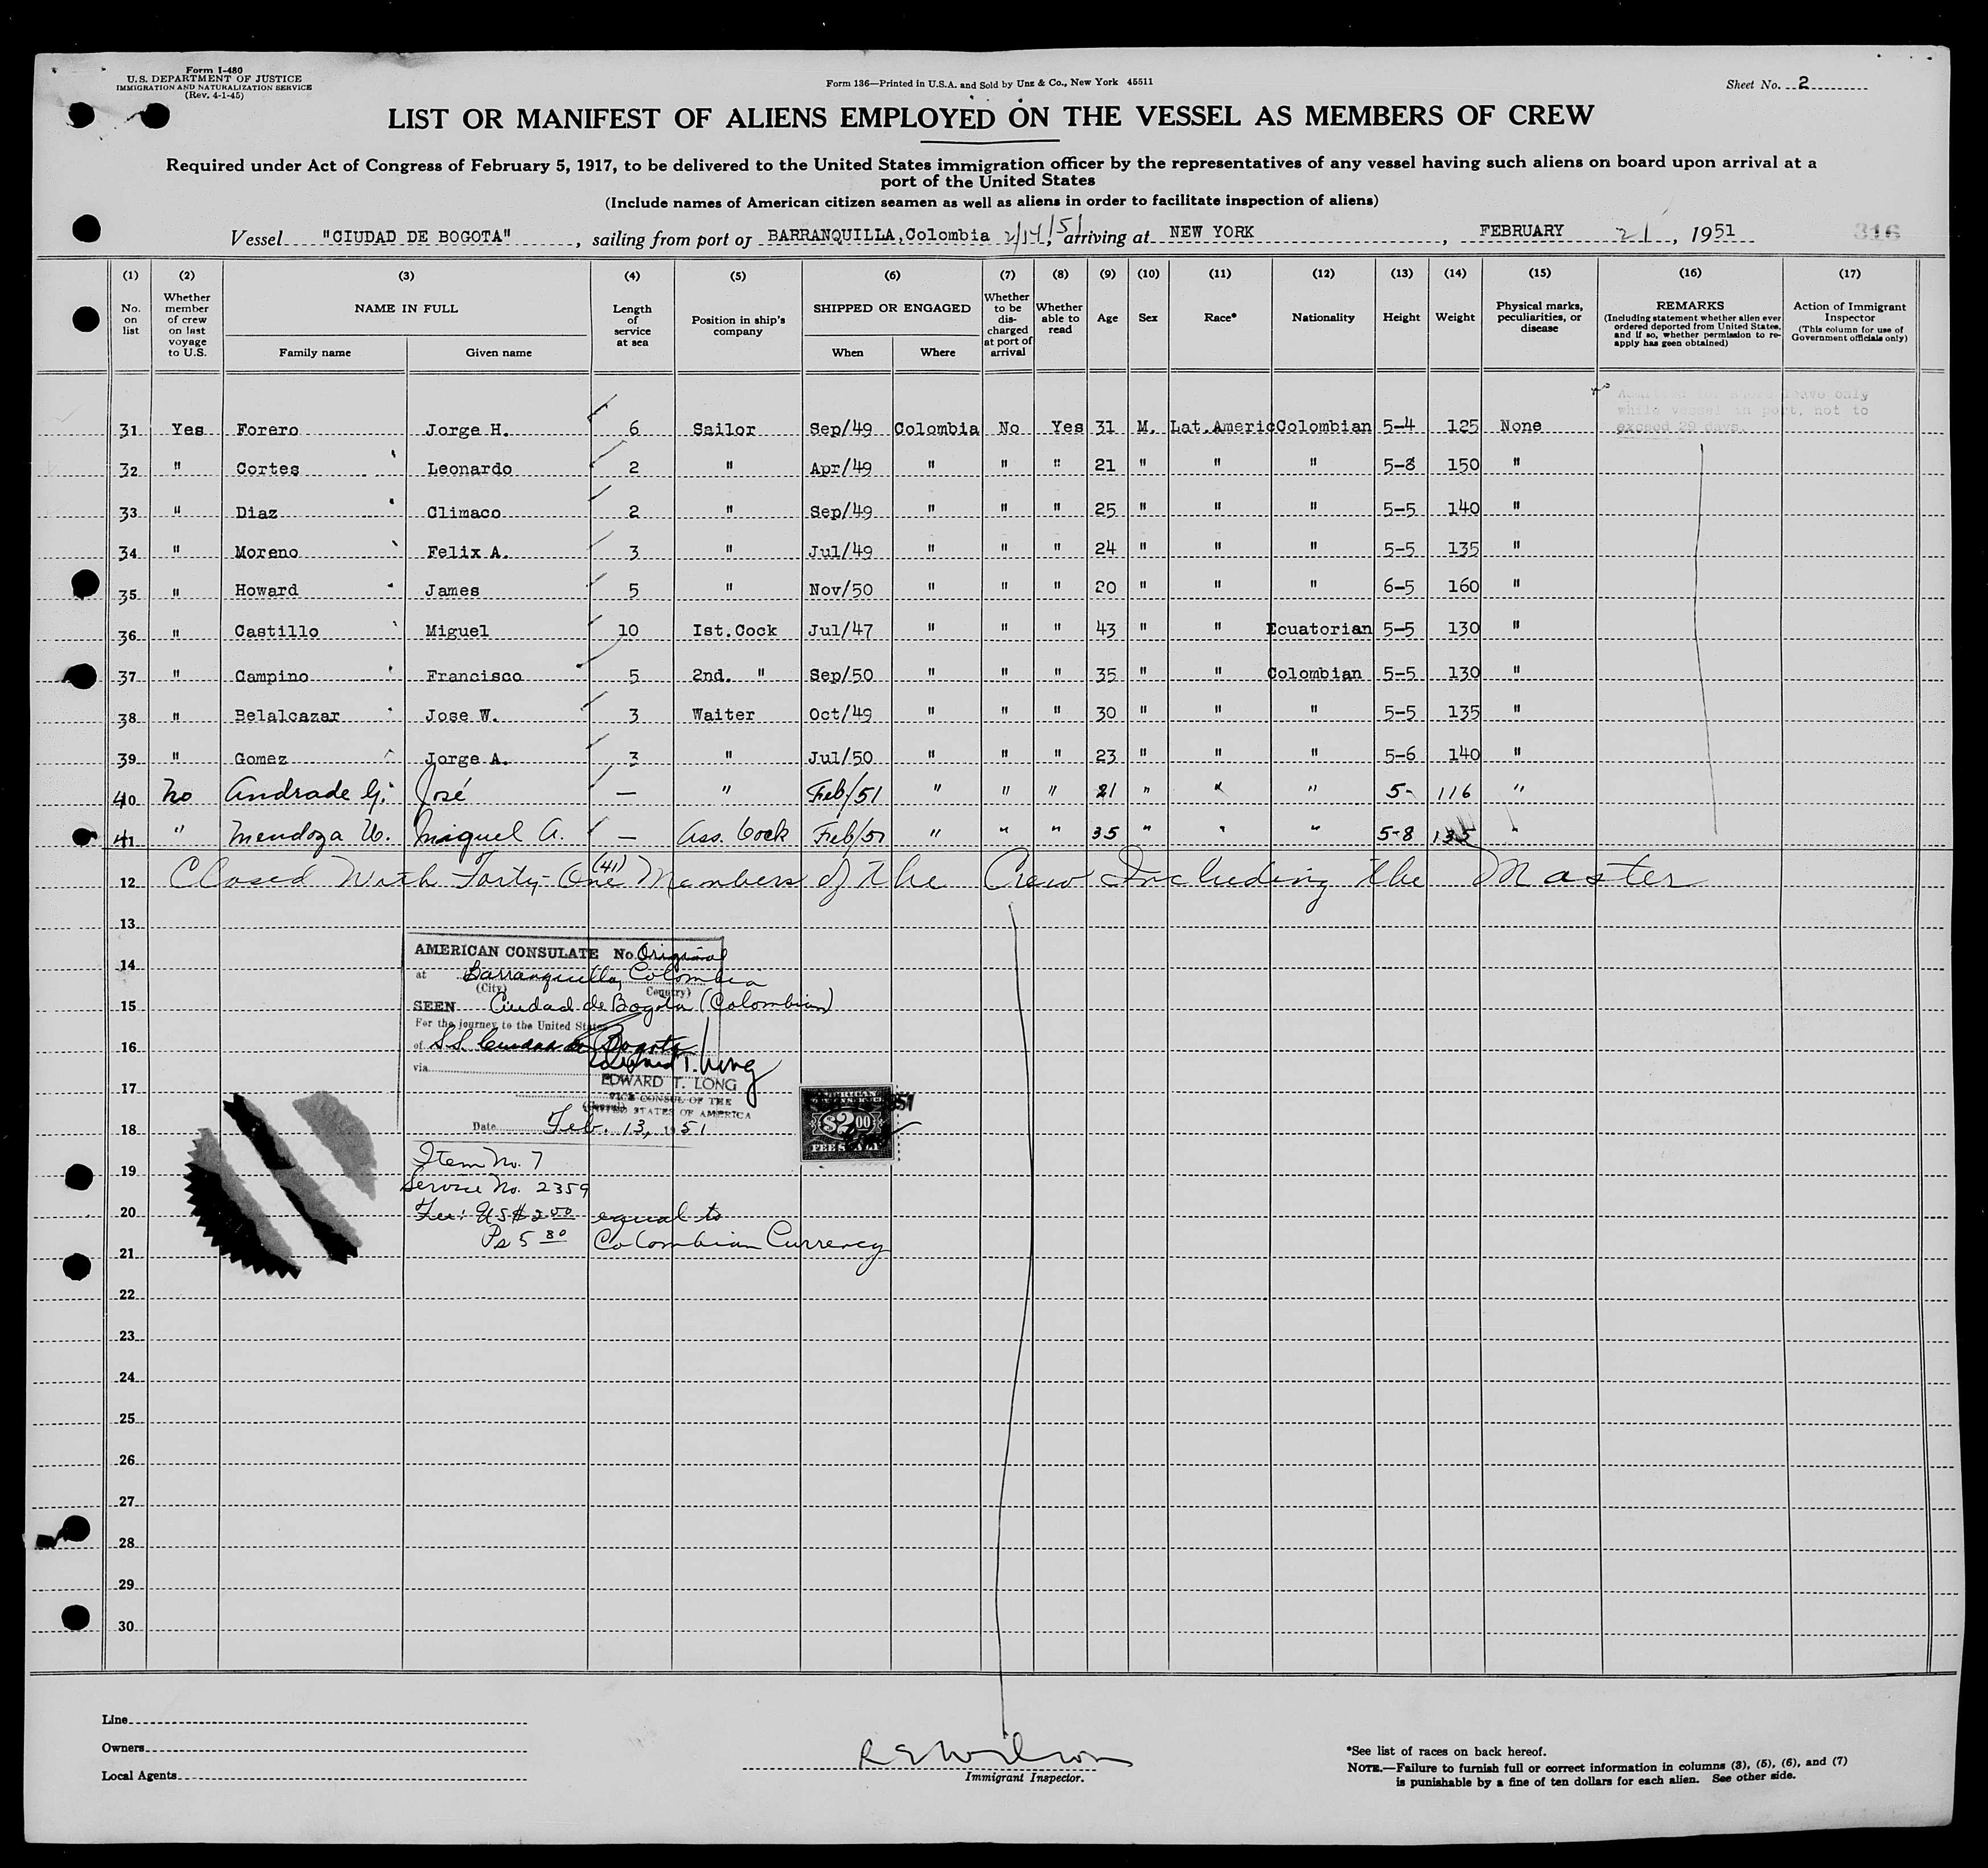 Form I-480
U.S. DEPARTMENT OF JUSTICE
IMMIGRATION AND NATURALIZATION SERVICE
(Rev. 4-1-45)
Form 136—Printed in U.S.A. and Sold by Unz & Co., New York 45511
Sheet No. 2
LIST OR MANIFEST OF ALIENS EMPLOYED ON THE VESSEL AS MEMBERS OF CREW
Required under Act of Congress of February 5, 1917, to be delivered to the United States immigration officer by the representatives of any vessel having such aliens on board upon arrival at a
port of the United States
(Include names of American citizen seamen as well as aliens in order to facilitate inspection of aliens)
Vessel "CIUDAD DE BOGOTA", sailing from port of BARRANQUILLA, Colombia 2/14/51, arriving at NEW YORK, FEBRUARY 21, 1951 316
(1) (2) (3) (4) (5) (6) (7) (8) (9) (10) (11) (12) (13) (14) (15) (16) (17)
No. on list
Whether member of crew on last voyage to U.S.
NAME IN FULL
Family name
Given name
Length of service at sea
Position in ship's company
SHIPPED OR ENGAGED
When
Where
Whether to be discharged at port of arrival
Whether able to read
Age
Sex
Race*
Nationality
Height
Weight
Physical marks, peculiarities, or disease
REMARKS
(Including statement whether alien ever ordered deported from United States, and if so, whether permission to re-apply has geen obtained)
Action of Immigrant Inspector
(This column for use of Government officials only)
Admitted for shore leave only
while vessel in port, not to
exceed 29 days.
31 Yes Forero Jorge H. 6 Sailor Sep/49 Colombia No Yes 31 M. Lat.Americ Colombian 5-4 125 None
32 " Cortes Leonardo 2 " Apr/49 " " " 21 " " " 5-8 150 "
33 " Diaz Climaco 2 " Sep/49 " " " 25 " " " 5-5 140 "
34 " Moreno Felix A. 3 " Jul/49 " " " 24 " " " 5-5 135 "
35 " Howard James 5 " Nov/50 " " " 20 " " " 6-5 160 "
36 " Castillo Miguel 10 Ist.Cock Jul/47 " " " 43 " " Ecuatorian 5-5 130 "
37 " Campino Francisco 5 2nd. " Sep/50 " " " 35 " " Colombian 5-5 130 "
38 " Belalcazar Jose W. 3 Waiter Oct/49 " " " 30 " " " 5-5 135 "
39 " Gomez Jorge A. 3 " Jul/50 " " " 23 " " " 5-6 140 "
40 No Andrade G. José — " Feb/51 " " " 21 " " " 5- 116 "
41 " Mendoza U. Miguel A. — Ass. Cock Feb/51 " " " 35 " " " 5-8 135 "
12 Closed With Forty-One (41) Members of the Crew Including the Master
13
AMERICAN CONSULATE No. Original
14
at Barranquilla, Colombia
(City) Country)
15
SEEN Ciudad de Bogota (Colombian)
For the journey to the United States
16
of S.S. Ciudad de Bogota
via
Edward T. Long
17
EDWARD T. LONG
VICE CONSUL OF THE
UNITED STATES OF AMERICA
18
Date Feb. 13, 1951
AMERICAN
$2.00
FEE STAMP
Item No. 7
19
Service No. 2359
20
Fee: US $2.00 equal to
Ps 5.80 Colombian Currency
21
22
23
24
25
26
27
28
29
30
Line
Owners
Local Agents
R E Wilson
Immigrant Inspector.
*See list of races on back hereof.
NOTE.—Failure to furnish full or correct information in columns (3), (5), (6), and (7)
is punishable by a fine of ten dollars for each alien. See other side.